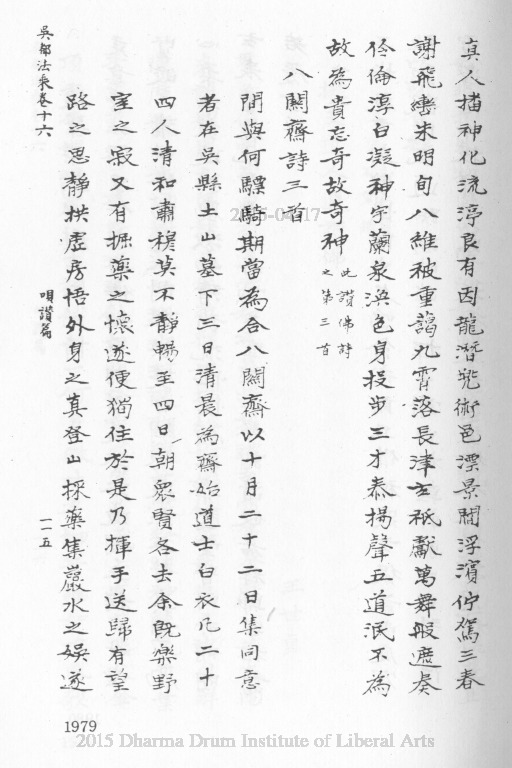 真人播神化流渟良有因龍潛兜術邑漂景閻浮濱佇駕三春
謝飛轡朱明旬八維被重藹九霄落長津玄祇獻萬舞般遮奏
伶倫淳白凝神宇蘭泉渙色身投步三才泰揚聲五道泯不為
故為貴忘奇故奇神
此讚佛詩
之第三首
八關齋詩三首
間與何驃騎期當為合八關齋以十月二十二日集同意
者在吳縣土山墓下三日清晨為齋始道士白衣凡二十
四人清和肅穆莫不靜暢至四日朝眾賢各去余既樂野
室之寂又有掘藥之懷遂便獨住於是乃揮手送歸有望
路之思靜拱虛房悟外身之真登山採藥集巖水之娛遂
吳都法乘卷十六
唄讚篇
一一五
1979
2015 Dharma Drum Institute of Liberal Arts